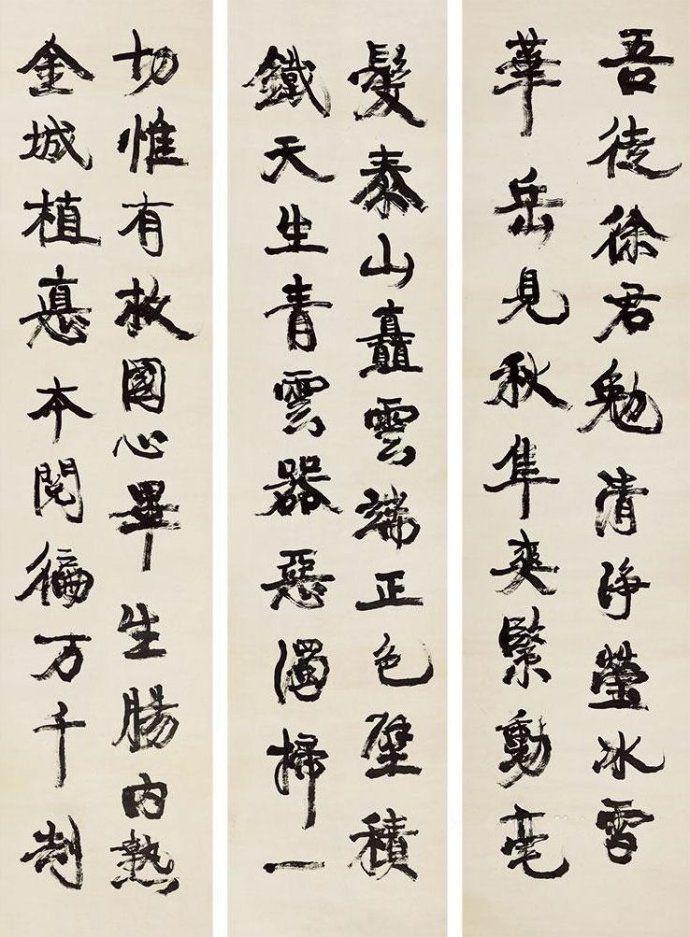 吾徒徐君勉清淨瑩冰雪
華岳見秋隼爽緊動毫
髮泰山矗雲端正色壁積
鐵天生青雲器惡濁掃一
切惟有救國心畢生腸內熱
金城植惪本閱徧万千刦